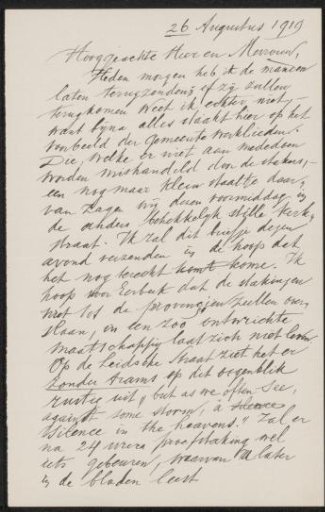 26 Augustus 1919
Hooggeachte Heer en Mevrouw,
Heden morgen heb ik de mannen
laten terugzenden; of zij zullen
terugkomen weet ik echter niet,
want bijna alles staakt hier op het
voorbeeld der Gemeente werklieden.
Die, welke er niet aan mededoen
worden mishandeld door de stakers,
een nog maar klein staaltje daar
van zagen wij dezen voormiddag in
de anders betrekkelijk stille Kerk-
straat. Ik zal dit briefje dezen
avond verzenden in de hoop dat
het nog terecht komt kome. Ik
hoop voor Eerbeek dat de stakingen
niet tot de provinciën zullen over
slaan, in een zoo ontwrichte
maatschappij laat zich niet leven
Op de Leidsche Straat ziet het er
zonder trams op dit oogenblik
rustig uit, "but as we often see,
against some storm, a silence
silence in the heavens." Zal er
na 24 urige proefstaking wel
iets gebeuren, waarvan U later
in de bladen leest